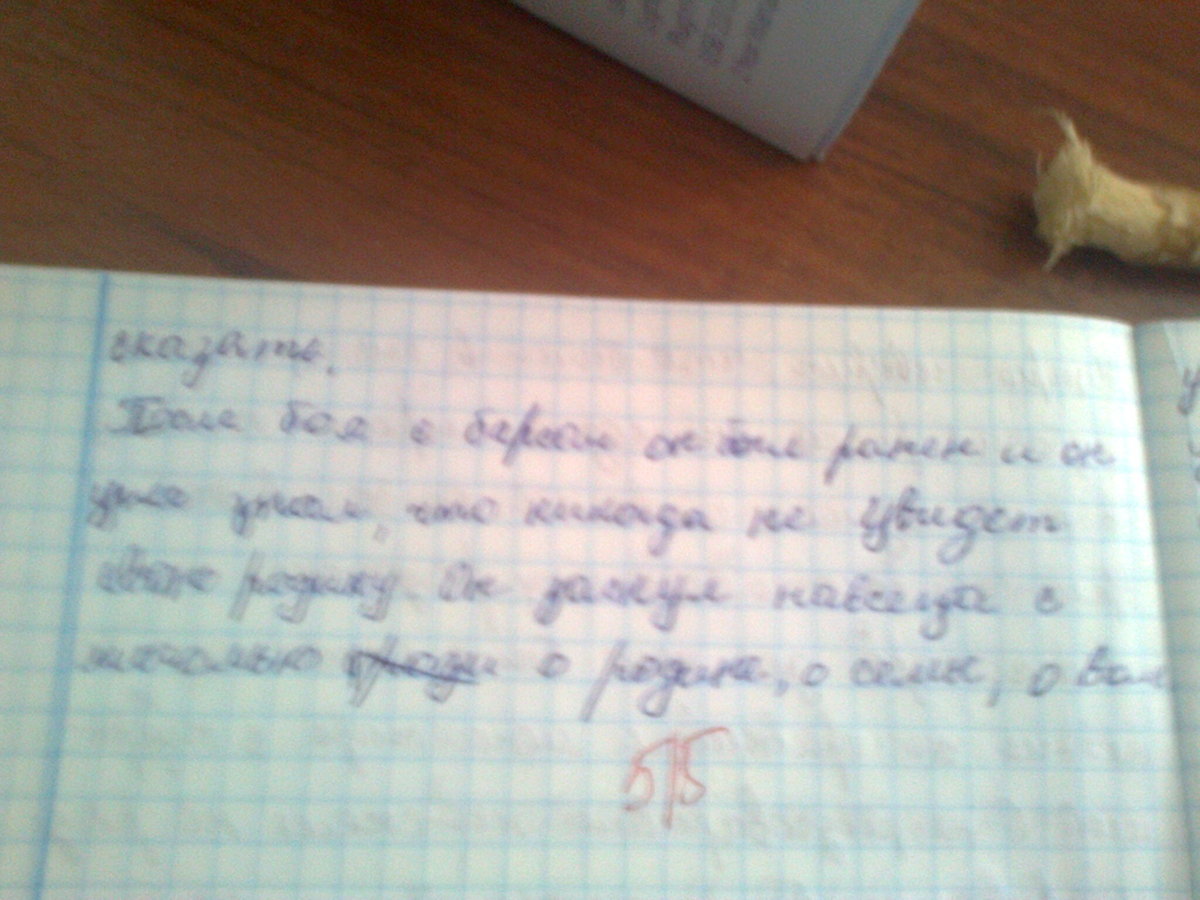 сказать.
После боя с барсом он был ранен и он
уже узнал, что никогда не увидет
свою родину. Он заснул навсегда с
о родине, о семье, о воле
5/5